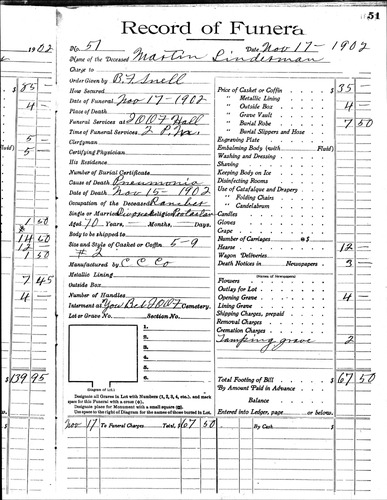 51
Record of Funera
1902
No. 51
Date, Nov 17 - 1902
Name of the Deceased Martin Linderman
Charge to
Order Given by B. F. Snell
How Secured
Date of Funeral Nov 17 - 1902
Place of Death
Funeral Services at IOOF Hall
Time of Funeral Services 2 P.M.
Clergyman
Certifying Physician
His Residence
Number of Burial Certificate
Cause of Death Pneumonia
Date of Death Nov 15 - 1902
Occupation of the Deceased Rancher
Single or Married Divorced Religion
Aged 70 Years — Months, — Days.
Body to be shipped to
Size and Style of Casket or Coffin 5-9
# 2
Manufactured by C C Co
Metallic Lining
Outside Box
Number of Handles
Interment at IOOF Cemetery.
Lot or Grave No. Section No.
1.
2.
3.
4.
5.
6.
(Diagram of Lot.)
Designate all Graves in Lot with Numbers (1, 2, 3, 4, etc.), and mark
space for this Funeral with a cross (+).
Designate place for Monument with a small square (□).
Use space to the right of Diagram for the names of those buried in Lot.
Nov 17 To Funeral Charges Total, $ 67 50
Price of Casket or Coffin $ 35 —
" Metallic Lining
" Outside Box 4 —
" Grave Vault
" Burial Robe 7 50
" Burial Slippers and Hose
Engraving Plate
Embalming Body (with Fluid)
Washing and Dressing
Shaving
Keeping Body on Ice
Disinfecting Rooms
Use of Catafalque and Drapery
" Folding Chairs
" Candelabrum
Candles
Gloves
Crape
Number of Carriages @ $
Hearse 12 —
Wagon Deliveries
Death Notices in Newspapers 3
(Names of Newspapers)
Flowers
Outlay for Lot
Opening Grave 4
Lining Grave
Shipping Charges, prepaid
Removal Charges
Cremation Charges
Tamping grave 2
Total Footing of Bill $ 67 50
By Amount Paid in Advance
Balance
Entered into Ledger, page or below.
By Cash $
$ 85 —
4 —
5 —
Fluid) 5 —
1 50
14 00
12
1 50
7 45
4 —
$ 139 95